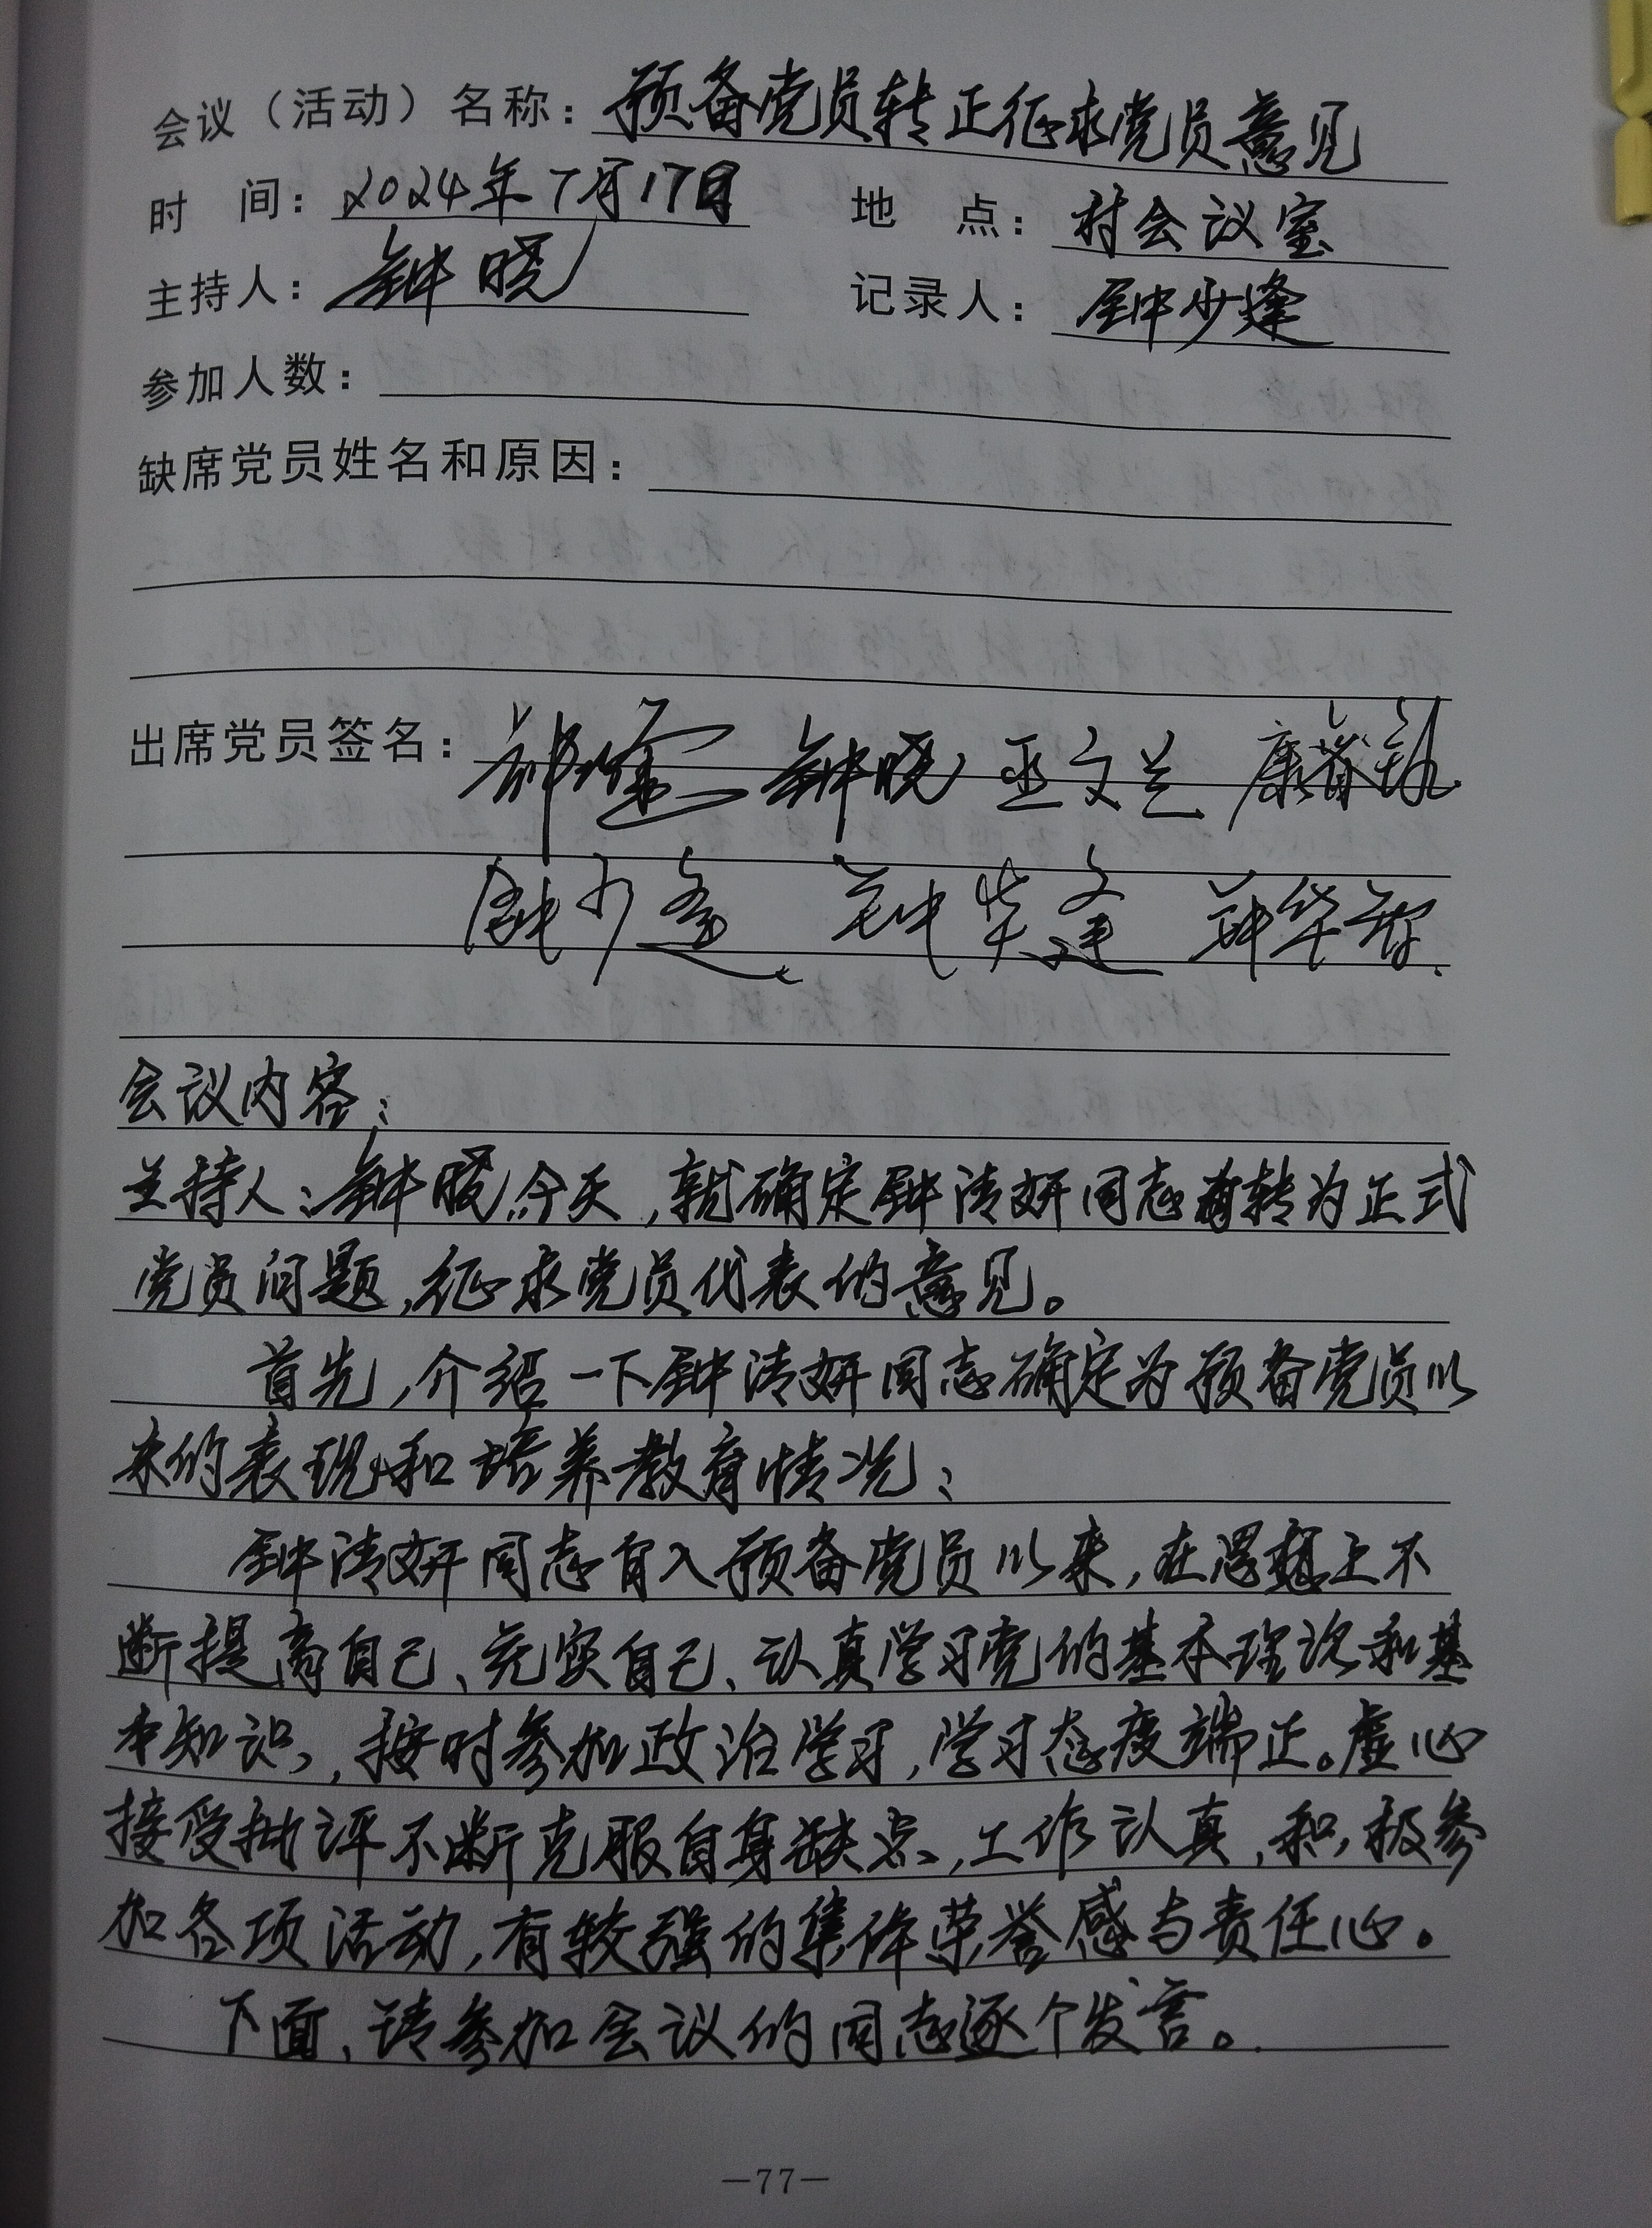 会议（活动）名称：预备党员转正征求党员意见
时 间：2024年7月17日 地 点：村会议室
主持人：钟晓 记录人：钟少逢
参加人数：
缺席党员姓名和原因：
出席党员签名：钟晓
会议内容：
主持人：钟晓，今天，就确定钟清妍同志转为正式
党员问题，征求党员代表的意见。
首先，介绍一下钟清妍同志确定为预备党员以
来的表现和培养教育情况：
钟清妍同志自入预备党员以来，在思想上不
断提高自己、充实自己、认真学习党的基本理论和基
本知识，按时参加政治学习，学习态度端正。虚心
接受批评不断克服自身缺点，工作认真，积极参
加各项活动，有较强的集体荣誉感与责任心。
下面，请参加会议的同志逐个发言。
—77—